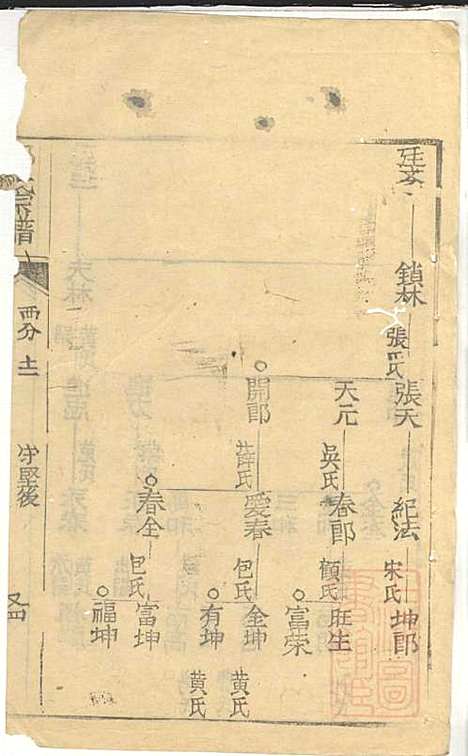 鎖林
張氏
張天
紀法
宋氏
坤郎
天元
吳氏
春郎
顧氏
旺生
富荣
開郎
薛氏
愛春
包氏
金坤
黄氏
有坤
黄氏
春全
包氏
富坤
福坤
宗譜
西分
守堅後